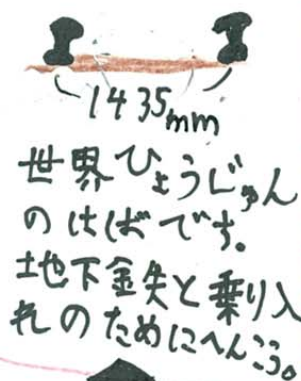 1435mm
世界ひょうじゅん
のはばです。
地下鉄と乗り入
れのためにへんこう。